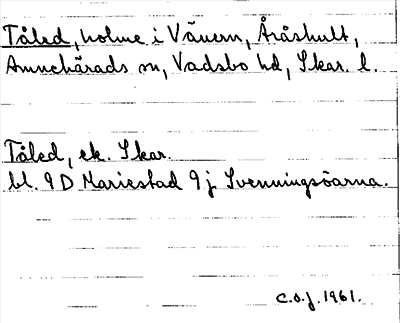 Tåled, holme i Vänern, Åråshult,
Amnehärads sn, Vadsbo hd, Skar. l.
Tåled, ek. Skar.
bl. 9 D Mariestad 9 j Svenningsöarna.
C.O.J. 1961.